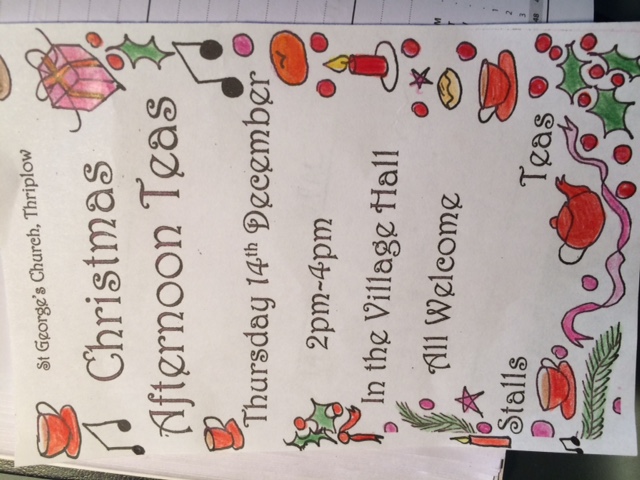 St George's Church, Thriplow
Christmas
Afternoon Teas
Thursday 14th December
2pm-4pm
In the Village Hall
All Welcome
Stalls
Teas